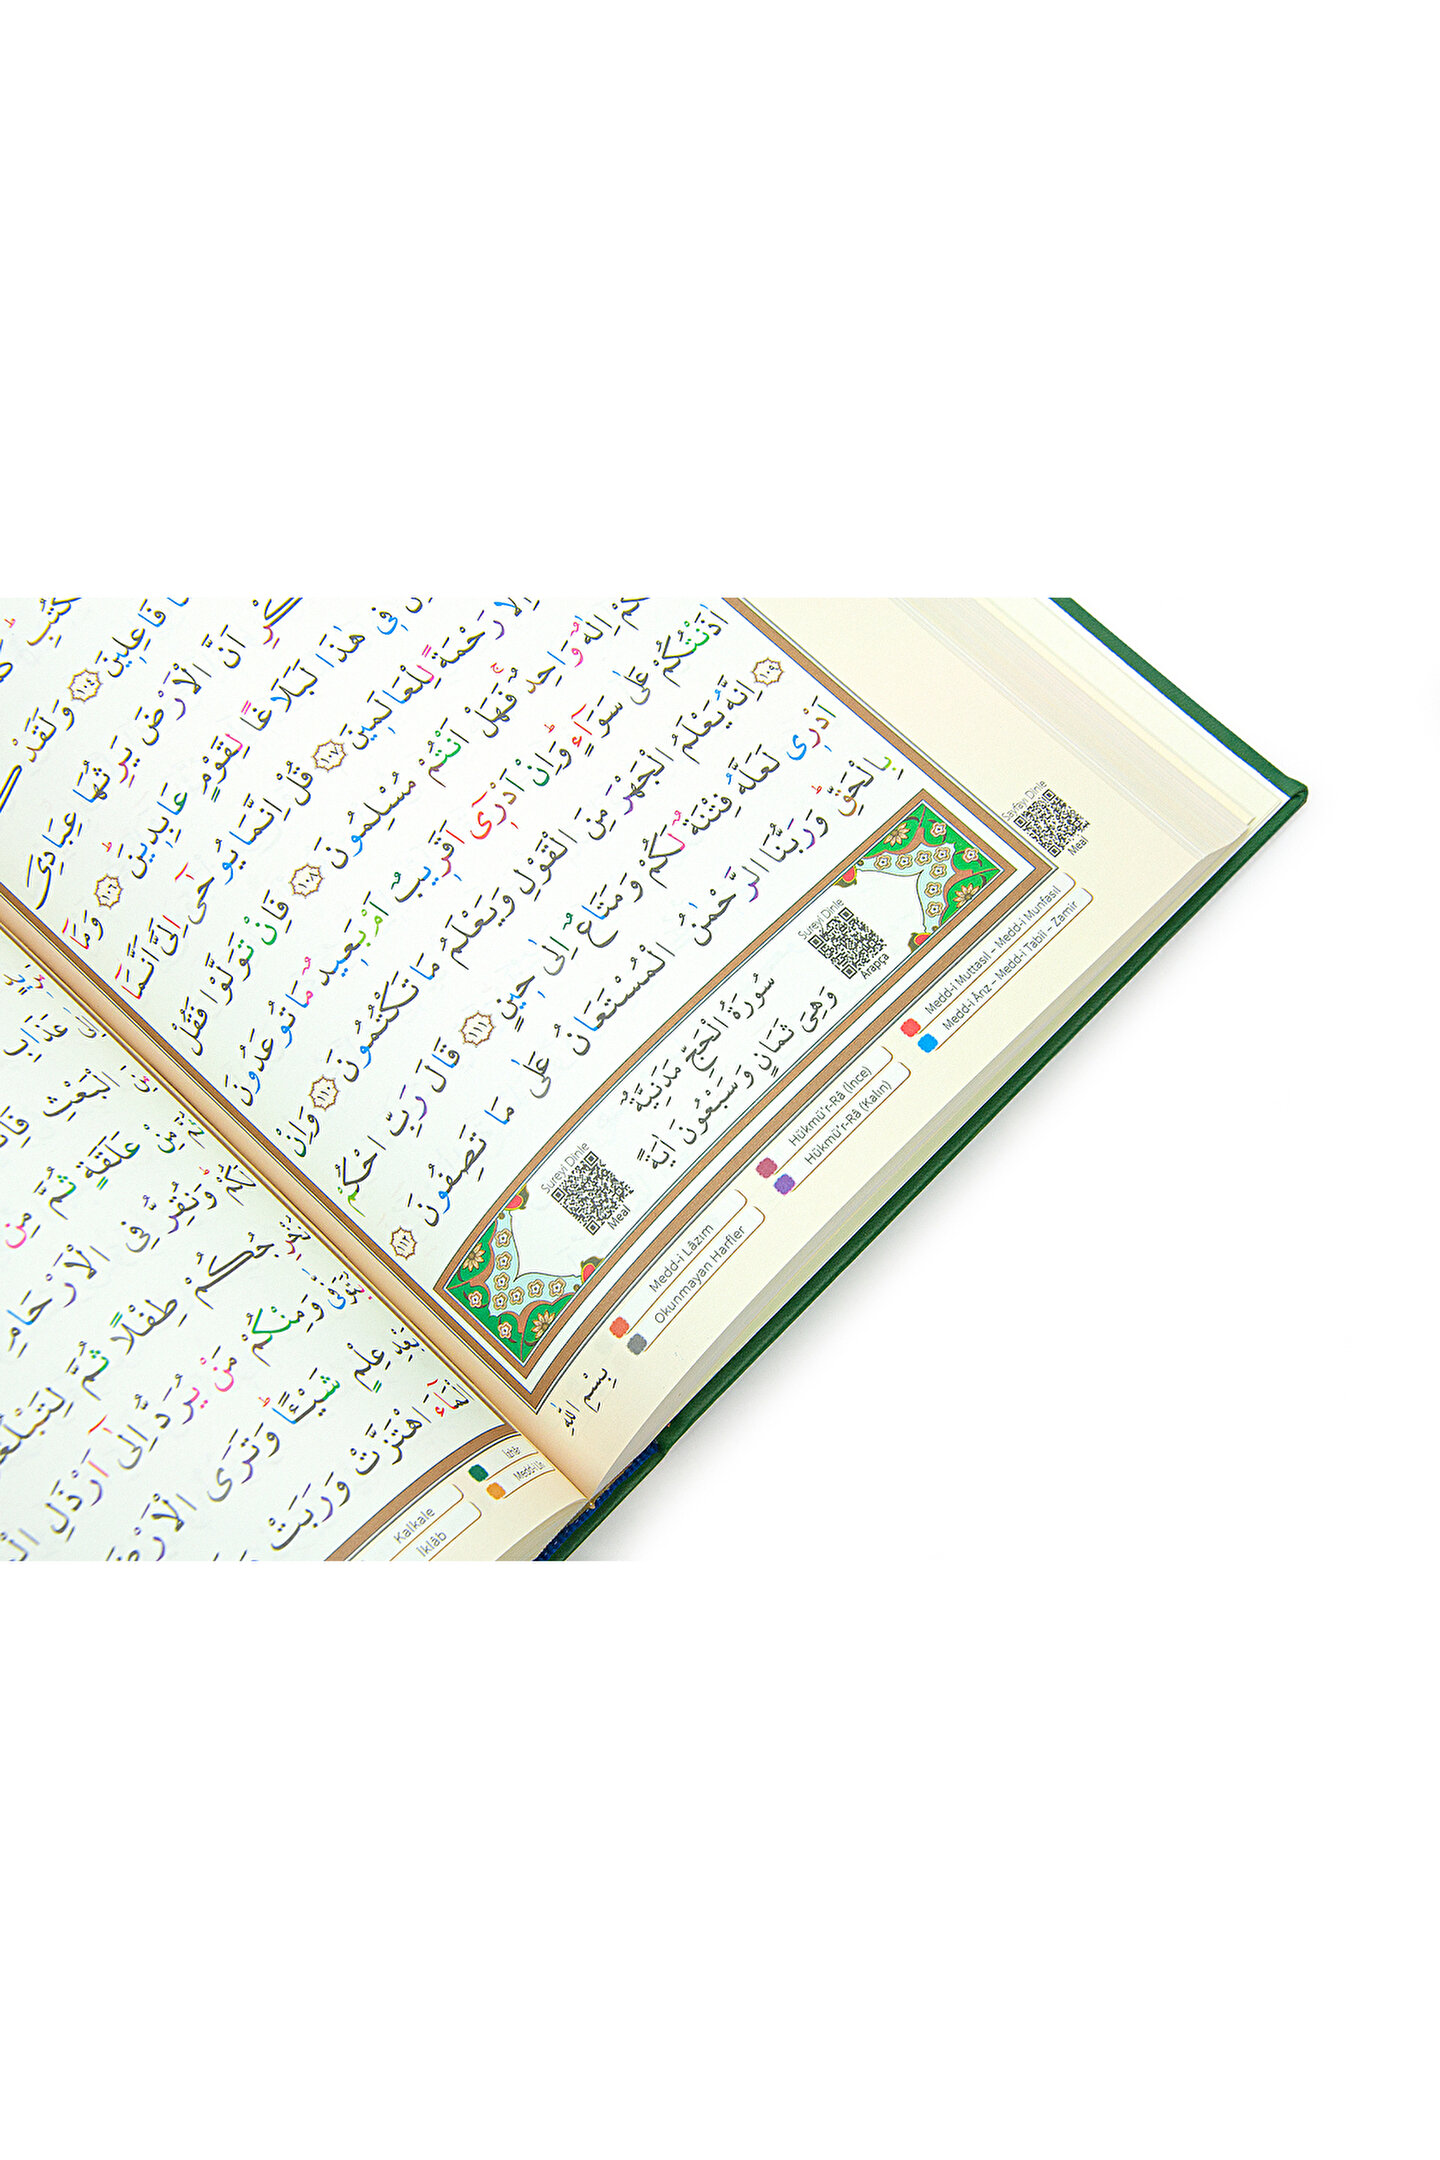 فَاعِلِينَ ١٠٤ وَلَقَدْ
اَنَّ الْاَرْضَ يَرِثُهَا عِبَادِىَ
فِى هٰذَا لَبَلَاغًا لِقَوْمٍ عَابِدِينَ ١٠٦ وَمَٓا
اِلَّا رَحْمَةً لِلْعَالَمِينَ ١٠٧ قُلْ اِنَّمَا يُوحٰٓى اِلَىَّ اَنَّمَٓا
اِلٰهٌ وَاحِدٌ فَهَلْ اَنْتُمْ مُسْلِمُونَ ١٠٨ فَاِنْ تَوَلَّوْا فَقُلْ
اٰذَنْتُكُمْ عَلٰى سَوَٓاءٍ وَاِنْ اَدْرِٓى اَقَرِيبٌ اَمْ بَعِيدٌ مَا تُوعَدُونَ
١٠٩ اِنَّهُ يَعْلَمُ الْجَهْرَ مِنَ الْقَوْلِ وَيَعْلَمُ مَا تَكْتُمُونَ ١١٠ وَاِنْ
اَدْرِى لَعَلَّهُ فِتْنَةٌ لَكُمْ وَمَتَاعٌ اِلٰى حِينٍ ١١١ قَالَ رَبِّ احْكُمْ
بِالْحَقِّ وَرَبُّنَا الرَّحْمٰنُ الْمُسْتَعَانُ عَلٰى مَا تَصِفُونَ ١١٢
Sureyi Dinle
Arapça
سُورَةُ الْحَجِّ مَدَنِيَّةٌ
وَهِىَ ثَمَانٍ وَسَبْعُونَ اٰيَةً
Sureyi Dinle
Meal
Sayfayı Dinle
Meal
Medd-i Muttasıl – Medd-i Munfasıl
Medd-i Ârız – Medd-i Tabii – Zamir
Hükmü'r-Râ (İnce)
Hükmü'r-Râ (Kalın)
Medd-i Lâzım
Okunmayan Harfler
بِسْمِ اللّٰهِ
عَذَابِ
الْبَعْثِ
مِنْ عَلَقَةٍ ثُمَّ مِنْ
لَكُمْ وَنُقِرُّ فِى الْاَرْحَامِ
نُخْرِجُكُمْ طِفْلًا ثُمَّ
وَمِنْكُمْ مَنْ يُرَدُّ اِلٰٓى اَرْذَلِ
عِلْمٍ شَيْـًٔا وَتَرَى الْاَرْضَ
الْمَٓاءَ اهْتَزَّتْ وَرَبَتْ
İzhâr
Kalkale
İklâb